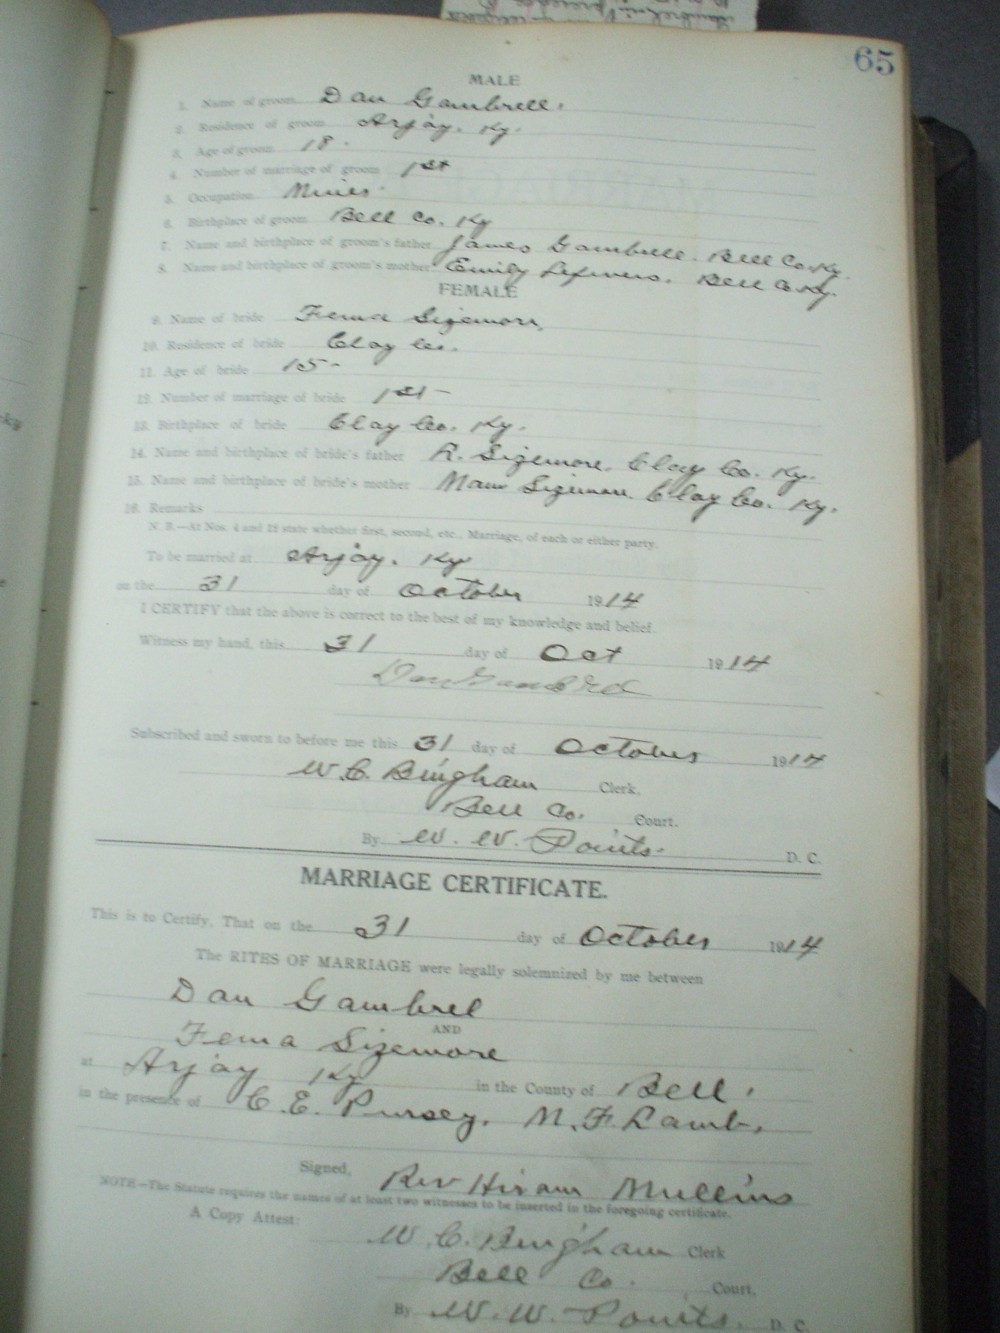 65
MALE
1. Name of groom Dan Gambrell.
2. Residence of groom Arjay, Ky.
3. Age of groom 18.
4. Number of marriage of groom 1st
5. Occupation Miner
6. Birthplace of groom Bell Co. Ky
7. Name and birthplace of groom's father James Gambrell. Bell Co. Ky.
8. Name and birthplace of groom's mother Emily Bell Co. Ky.
FEMALE
9. Name of bride Fema Sizemore,
10. Residence of bride Clay Co.
11. Age of bride 15-
12. Number of marriage of bride 1st -
13. Birthplace of bride Clay Co. Ky.
14. Name and birthplace of bride's father Sizemore. Clay Co. Ky.
15. Name and birthplace of bride's mother Sizemore Clay Co. Ky.
16. Remarks
N. B.—At Nos. 4 and 12 state whether first, second, etc., Marriage, of each or either party.
To be married at Arjay. Ky
on the 31 day of October 1914
I CERTIFY that the above is correct to the best of my knowledge and belief.
Witness my hand, this 31 day of Oct 1914
Dan Gambrel
Subscribed and sworn to before me this 31 day of October 1914
W. C. Bingham Clerk,
Bell Co. Court.
By W. W. Points. D. C.
MARRIAGE CERTIFICATE.
This is to Certify, That on the 31 day of October 1914
The RITES OF MARRIAGE were legally solemnized by me between
Dan Gambrel
AND
Fema Sizemore
at Arjay Ky in the County of Bell.
in the presence of C. E. Pursey, M. F. Lamb,
Signed, Rev Hiram Mullins
NOTE—The Statute requires the names of at least two witnesses to be inserted in the foregoing certificate.
A Copy Attest: W. C. Bingham Clerk
Bell Co. Court.
By W. W. Points. D. C.